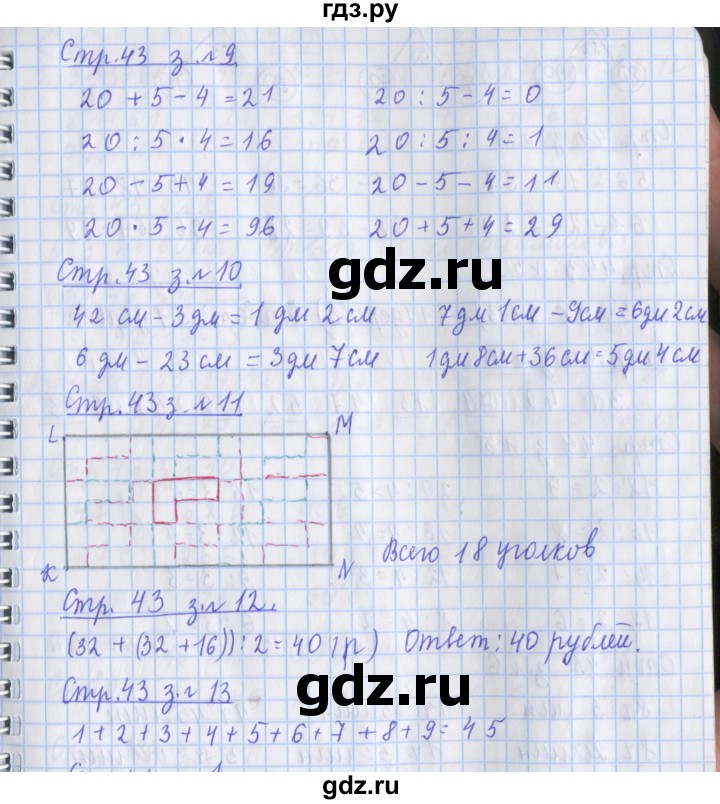 гдз.ру
Стр.43 з.№9
20 + 5 - 4 = 21    20 : 5 - 4 = 0
20 : 5 · 4 = 16    20 : 5 : 4 = 1
20 - 5 + 4 = 19    20 - 5 - 4 = 11
20 · 5 - 4 = 96    20 + 5 + 4 = 29
Стр.43 з.№10
gdz.ru
42 см - 3 дм = 1 дм 2 см    7 дм 1 см - 9 см = 6 дм 2 см
6 дм - 23 см = 3 дм 7 см    1 дм 8 см + 36 см = 5 дм 4 см
Стр.43 з.№11
L    M
K    N
Всего 18 уголков
Стр. 43 з.№12.
(32 + (32 + 16)) : 2 = 40 (р)    Ответ: 40 рублей.
Стр.43 з.№13
gdz.ru
1 + 2 + 3 + 4 + 5 + 6 + 7 + 8 + 9 = 45
gdz.ru